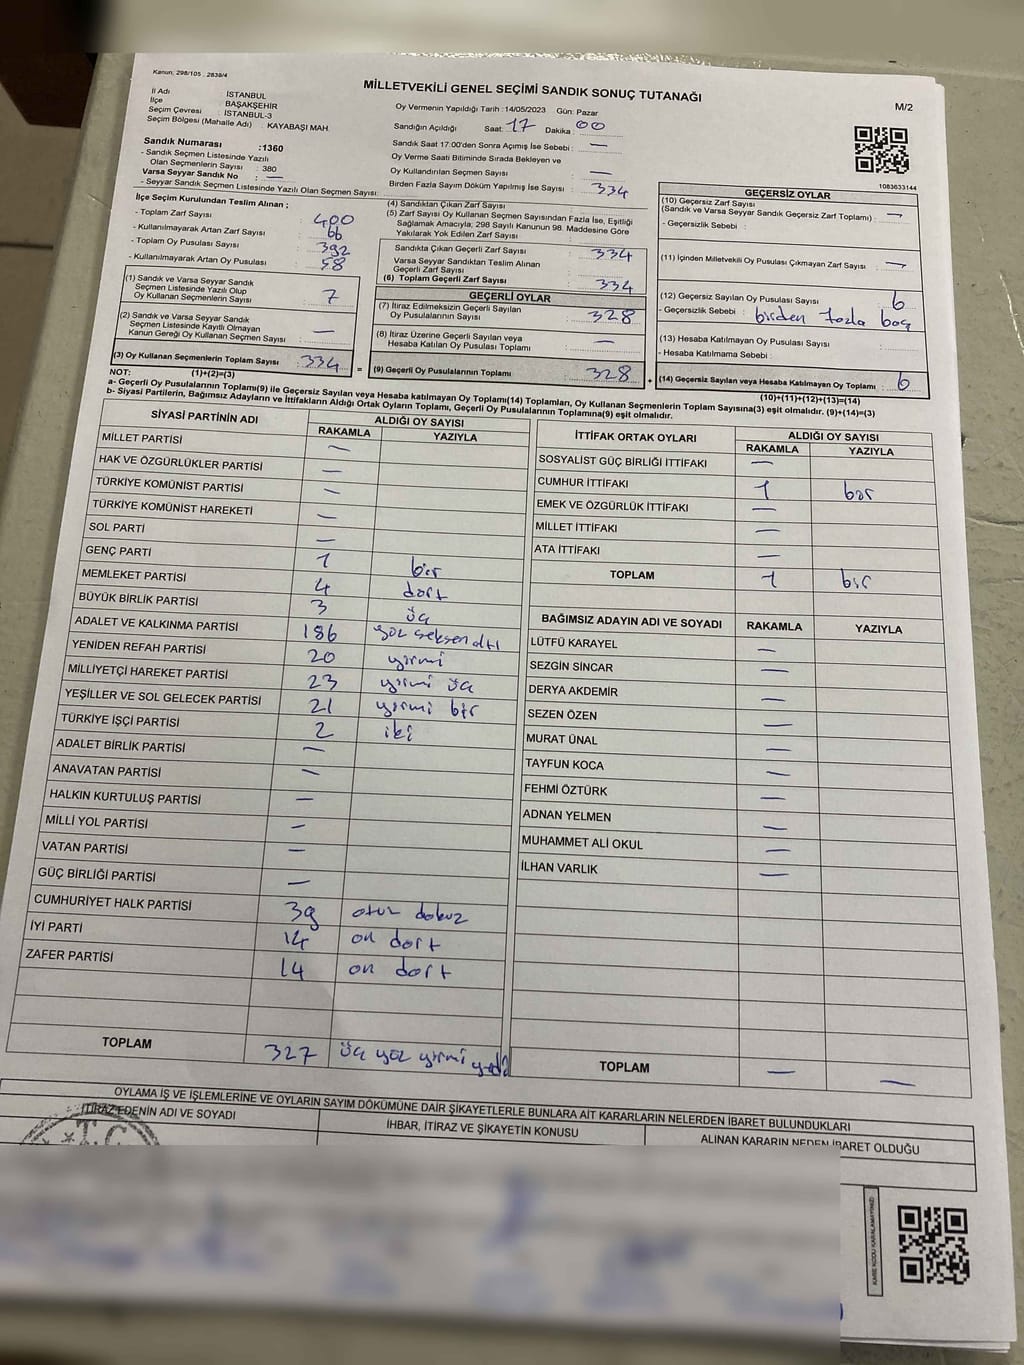 Kanun, 298/105 , 2839/4
MİLLETVEKİLİ GENEL SEÇİMİ SANDIK SONUÇ TUTANAĞI
M/2
İl Adı : İSTANBUL
İlçe : BAŞAKŞEHİR
Seçim Çevresi : İSTANBUL-3
Seçim Bölgesi (Mahalle Adı) : KAYABAŞI MAH.
Sandık Numarası :1360
- Sandık Seçmen Listesinde Yazılı
Olan Seçmenlerin Sayısı : 380
Varsa Seyyar Sandık No : —
- Seyyar Sandık Seçmen Listesinde Yazılı Olan Seçmen Sayısı:
Oy Vermenin Yapıldığı Tarih :14/05/2023 Gün: Pazar
Sandığın Açıldığı Saat: 17 Dakika : 00
Sandık Saat 17:00'den Sonra Açımış İse Sebebi : —
Oy Verme Saati Bitiminde Sırada Bekleyen ve
Oy Kullandırılan Seçmen Sayısı : —
Birden Fazla Sayım Döküm Yapılmış İse Sayısı : 334
1083633144
İlçe Seçim Kurulundan Teslim Alınan ;
- Toplam Zarf Sayısı : 400
- Kullanılmayarak Artan Zarf Sayısı : 66
- Toplam Oy Pusulası Sayısı : 392
- Kullanılmayarak Artan Oy Pusulası : 58
(1) Sandık ve Varsa Seyyar Sandık
Seçmen Listesinde Yazılı Olup
Oy Kullanan Seçmenlerin Sayısı : 7
(2) Sandık ve Varsa Seyyar Sandık
Seçmen Listesinde Kayıtlı Olmayan
Kanun Gereği Oy Kullanan Seçmen Sayısı : —
(3) Oy Kullanan Seçmenlerin Toplam Sayısı : 334
(4) Sandıktan Çıkan Zarf Sayısı
(5) Zarf Sayısı Oy Kullanan Seçmen Sayısından Fazla İse, Eşitliği
Sağlamak Amacıyla; 298 Sayılı Kanunun 98. Maddesine Göre
Yakılarak Yok Edilen Zarf Sayısı :
Sandıkta Çıkan Geçerli Zarf Sayısı : 334
Varsa Seyyar Sandıktan Teslim Alınan
Geçerli Zarf Sayısı :
(6) Toplam Geçerli Zarf Sayısı : 334
GEÇERLİ OYLAR
(7) İtiraz Edilmeksizin Geçerli Sayılan
Oy Pusulalarının Sayısı : 328
(8) İtiraz Üzerine Geçerli Sayılan veya
Hesaba Katılan Oy Pusulası Toplamı : —
= (9) Geçerli Oy Pusulalarının Toplamı : 328
GEÇERSİZ OYLAR
(10) Geçersiz Zarf Sayısı
(Sandık ve Varsa Seyyar Sandık Geçersiz Zarf Toplamı) : —
- Geçersizlik Sebebi :
(11) İçinden Milletvekili Oy Pusulası Çıkmayan Zarf Sayısı : —
(12) Geçersiz Sayılan Oy Pusulası Sayısı : 6
- Geçersizlik Sebebi : birden fazla
(13) Hesaba Katılmayan Oy Pusulası Sayısı :
- Hesaba Katılmama Sebebi :
+ (14) Geçersiz Sayılan veya Hesaba Katılmayan Oy Toplamı : 6
NOT: (1)+(2)=(3) (10)+(11)+(12)+(13)=(14)
a- Geçerli Oy Pusulalarının Toplamı(9) ile Geçersiz Sayılan veya Hesaba Katılmayan Oy Toplamı(14) Toplamları, Oy Kullanan Seçmenlerin Toplam Sayısına(3) eşit olmalıdır. (9)+(14)=(3)
b- Siyasi Partilerin, Bağımsız Adayların ve İttifakların Aldığı Ortak Oyların Toplamı, Geçerli Oy Pusulalarının Toplamına(9) eşit olmalıdır.
SİYASİ PARTİNİN ADI ALDIĞI OY SAYISI
RAKAMLA YAZIYLA
MİLLET PARTİSİ —
HAK VE ÖZGÜRLÜKLER PARTİSİ —
TÜRKİYE KOMÜNİST PARTİSİ —
TÜRKİYE KOMÜNİST HAREKETİ —
SOL PARTİ —
GENÇ PARTİ 1 bir
MEMLEKET PARTİSİ 4 dört
BÜYÜK BİRLİK PARTİSİ 3 üç
ADALET VE KALKINMA PARTİSİ 186 yüz seksen altı
YENİDEN REFAH PARTİSİ 20 yirmi
MİLLİYETÇİ HAREKET PARTİSİ 23 yirmi üç
YEŞİLLER VE SOL GELECEK PARTİSİ 21 yirmi bir
TÜRKİYE İŞÇİ PARTİSİ 2 iki
ADALET BİRLİK PARTİSİ —
ANAVATAN PARTİSİ —
HALKIN KURTULUŞ PARTİSİ —
MİLLİ YOL PARTİSİ —
VATAN PARTİSİ —
GÜÇ BİRLİĞİ PARTİSİ —
CUMHURİYET HALK PARTİSİ 39 otuz dokuz
İYİ PARTİ 14 on dört
ZAFER PARTİSİ 14 on dört
TOPLAM 327 üç yüz yirmi yedi
İTTİFAK ORTAK OYLARI ALDIĞI OY SAYISI
RAKAMLA YAZIYLA
SOSYALİST GÜÇ BİRLİĞİ İTTİFAKI —
CUMHUR İTTİFAKI 1 bir
EMEK VE ÖZGÜRLÜK İTTİFAKI —
MİLLET İTTİFAKI —
ATA İTTİFAKI —
TOPLAM 1 bir
BAĞIMSIZ ADAYIN ADI VE SOYADI RAKAMLA YAZIYLA
LÜTFÜ KARAYEL —
SEZGİN SİNCAR —
DERYA AKDEMİR —
SEZEN ÖZEN —
MURAT ÜNAL —
TAYFUN KOCA —
FEHMİ ÖZTÜRK —
ADNAN YELMEN —
MUHAMMET ALİ OKUL —
İLHAN VARLIK —
TOPLAM — —
OYLAMA İŞ VE İŞLEMLERİNE VE OYLARIN SAYIM DÖKÜMÜNE DAİR ŞİKAYETLERLE BUNLARA AİT KARARLARIN NELERDEN İBARET BULUNDUKLARI
İTİRAZ EDENİN ADI VE SOYADI İHBAR, İTİRAZ VE ŞİKAYETİN KONUSU ALINAN KARARIN NEDEN İBARET OLDUĞU
T.C
KARE KODU KARALAMAYINIZ!